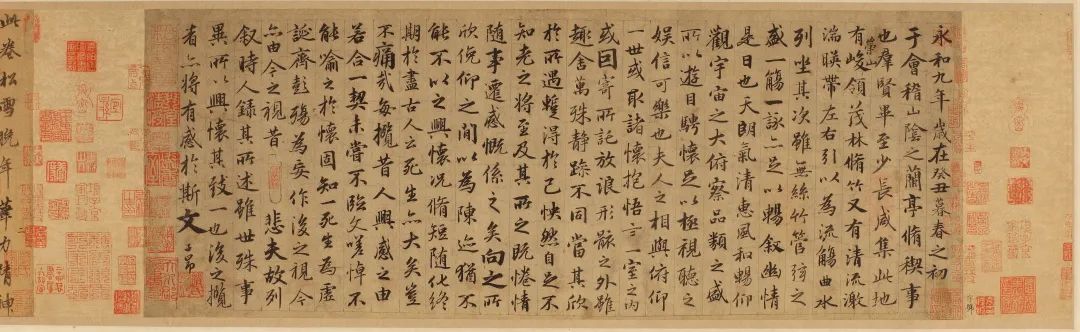 永和九年歲在癸丑暮春之初
于會稽山陰之蘭亭脩禊事
也羣賢畢至少長咸集此地
有崇山峻領茂林脩竹又有清流激
湍暎帶左右引以為流觴曲水
列坐其次雖無絲竹管弦之
盛一觴一詠亦足以暢敘幽情
是日也天朗氣清惠風和暢仰
觀宇宙之大俯察品類之盛
所以遊目騁懷足以極視聽之
娛信可樂也夫人之相與俯仰
一世或取諸懷抱悟言一室之內
或因寄所託放浪形骸之外雖
趣舍萬殊静躁不同當其欣
於所遇蹔得於己怏然自足不
知老之將至及其所之既惓情
隨事遷感慨係之矣向之所
欣俛仰之間以為陳迹猶不
能不以之興懷況脩短隨化終
期於盡古人云死生亦大矣豈
不痛哉每攬昔人興感之由
若合一契未嘗不臨文嗟悼不
能喻之於懷固知一死生為虛
誕齊彭殤為妄作後之視今
亦由今之視昔悲夫故列
敘時人錄其所述雖世殊事
異所以興懷其致一也後之攬
者亦將有感於斯文 子昂
此卷松雪晚年筆力精神